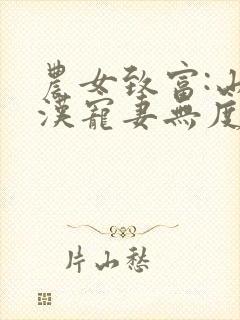 農女致富:山
漢寵妻無度
片山愁